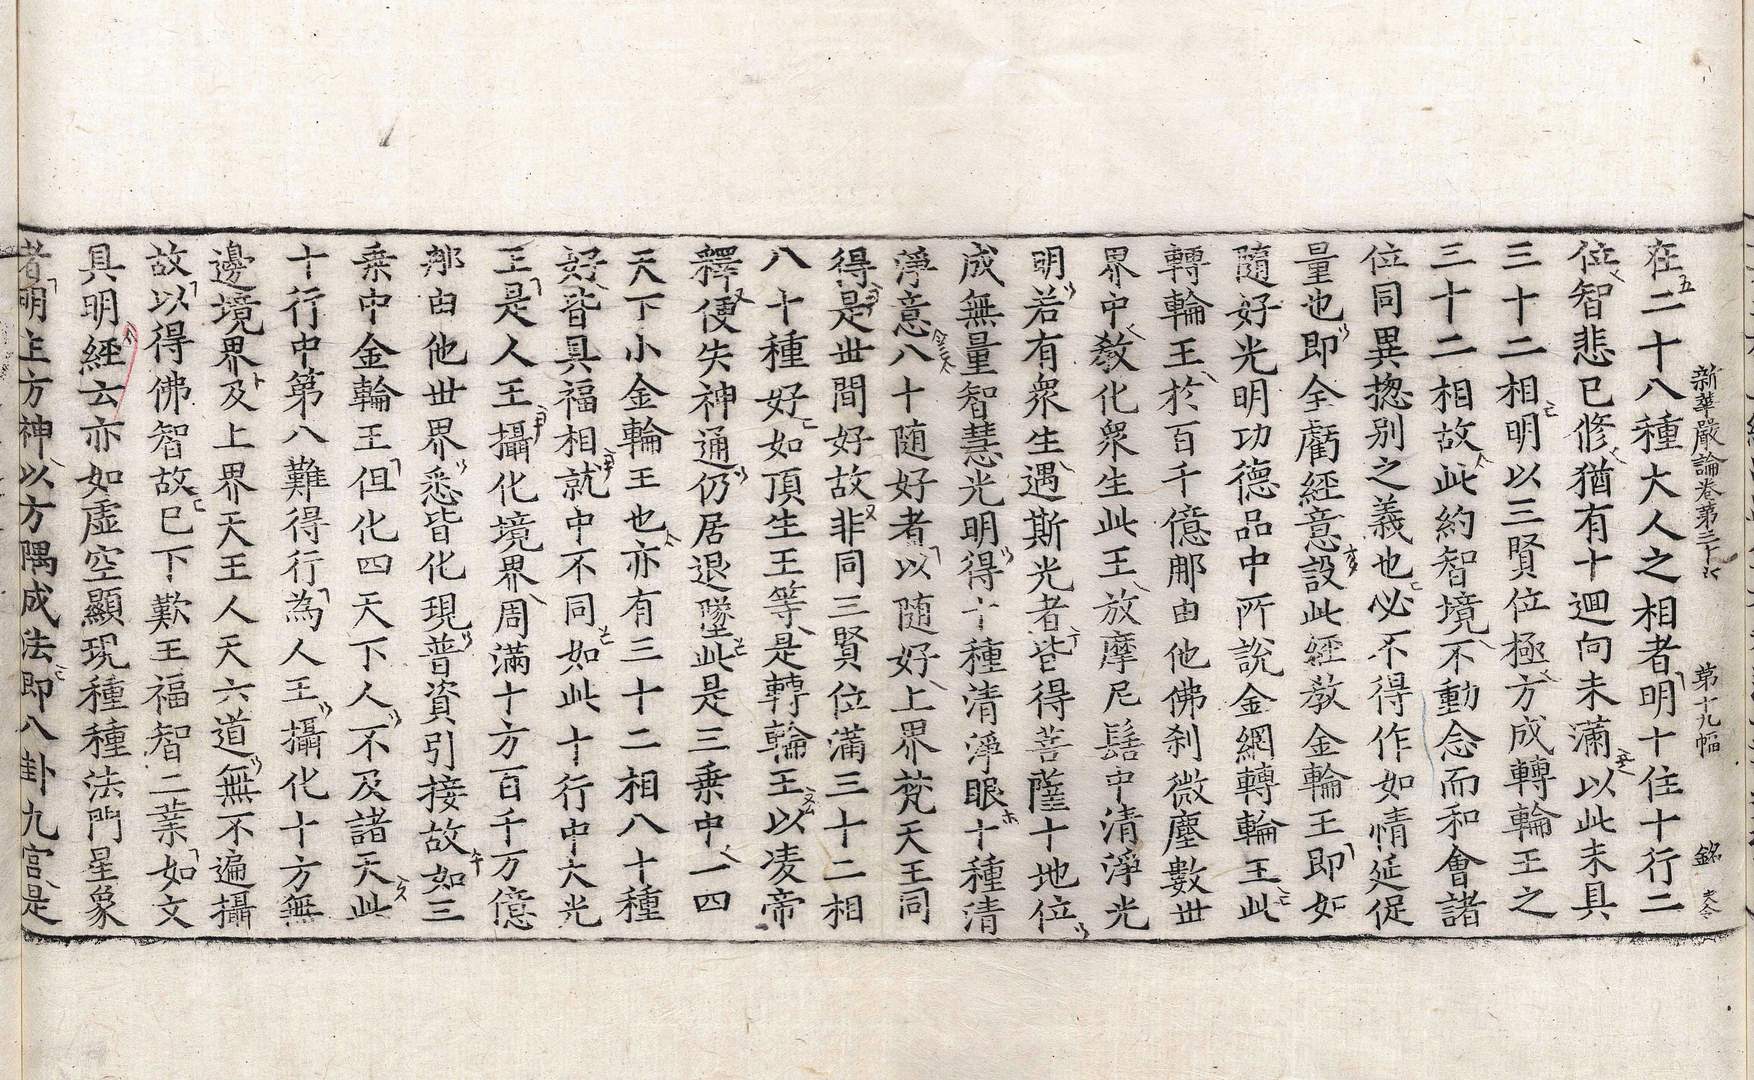 新華嚴論卷第三十六 第十九幅 銘
在二十八種大人之相者明十住十行二
位智悲已修猶有十迴向未滿以此未具
三十二相明以三賢位極方成轉輪王之
三十二相故此約智境不動念而和會諸
位同異揔别之義也必不得作如情延促
量也即全虧經意設此經教金輪王即如
隨好光明功德品中所說金網轉輪王此
轉輪王於百千億那由他佛刹微塵數世
界中教化衆生此王放摩尼髻中清淨光
明若有衆生遇斯光者皆得菩薩十地位
成無量智慧光明得十種清淨眼十種清
淨意八十隨好者以隨好上界梵天王同
得是世間好故非同三賢位滿三十二相
八十種好如頂生王等是轉輪王以凌帝
釋便失神通仍居退墜此是三乘中一四
天下小金輪王也亦有三十二相八十種
好皆具福相就中不同如此十行中大光
王是人王攝化境界周滿十方百千万億
那由他世界悉皆化現普資引接故如三
乘中金輪王但化四天下人不及諸天此
十行中第八難得行為人王攝化十方無
邊境界及上界天王人天六道無不遍攝
故以得佛智故已下歎王福智二業如文
具明經云亦如虛空顯現種種法門星象
者明主方神以方隅成法即八卦九宮是